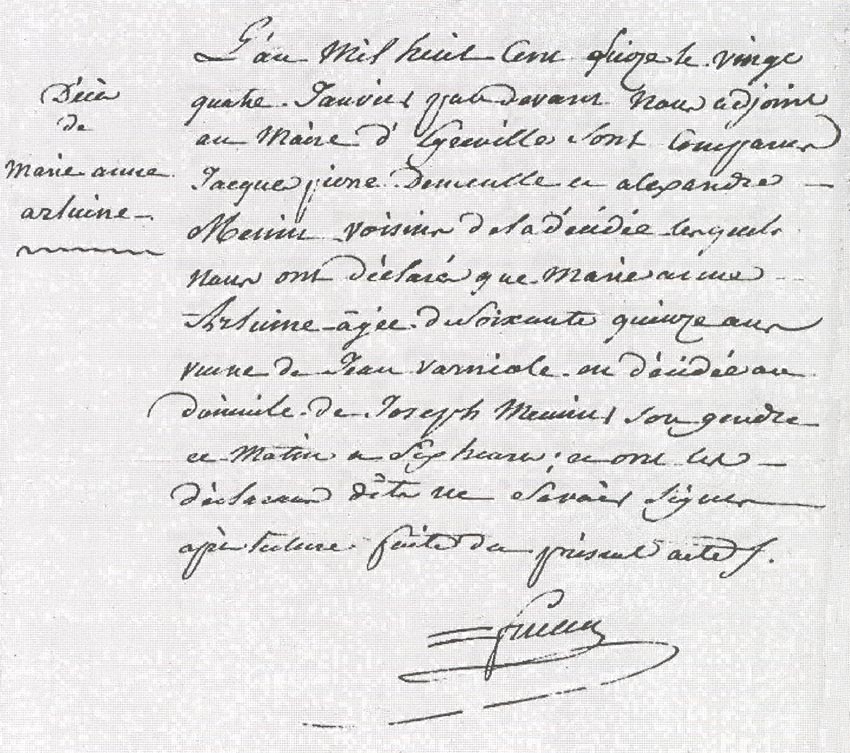 Décès
de
Marie anne
artuine
L'an Mil huit Cent Quize le vingt
quatre Janvier par devant Nous adjoint
au Maire d' sont Comparus
Jacque pierre Demeulle et alexandre
voisins de la décédée lesquels
Nous ont déclaré que Marie anne
Artuine âgée de Soixante quinze ans
veuve de Jean Varniole est décédée au
domicile de Joseph son gendre
ce Matin a Six heures; et ont les
déclarans dits ne Savoir Signer
après lecture faite du présent acte